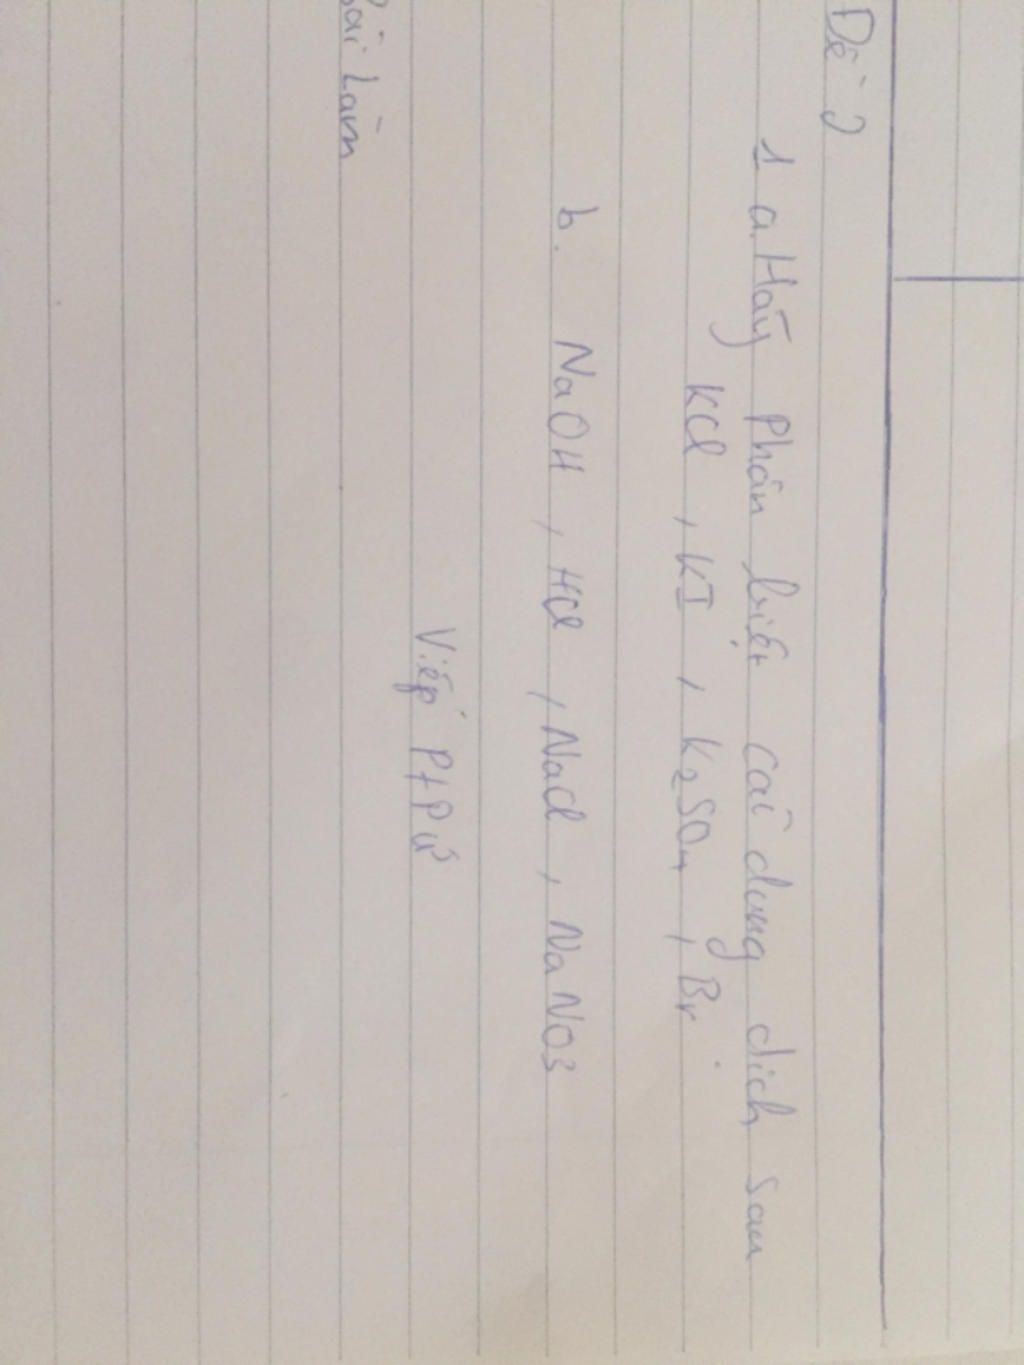 Đề 2
1 a. Hãy phân biệt các dung dịch sau
KCl, KI, K2SO4, Br
b. NaOH, HCl, NaCl, NaNO3
Viết PTPƯ
Bài Làm